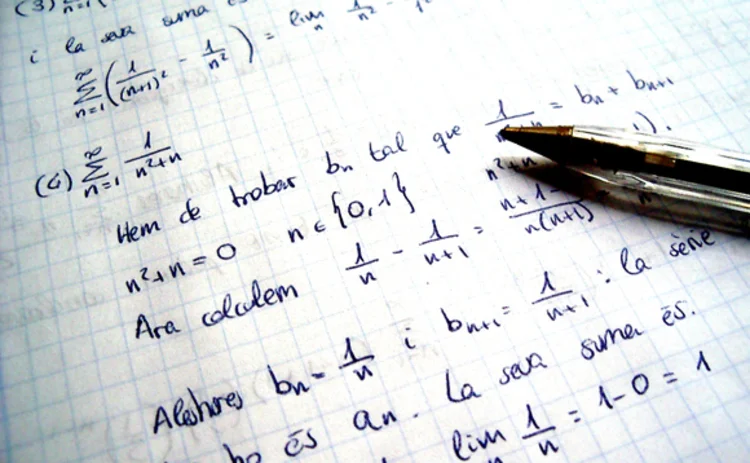 (3) n=1
i la seva suma és lim 1/n² -
∞∑n=1 (1/(n+1)² - 1/n²) =
(4) ∞∑n=1 1/(n²+n)
Hem de trobar bn tal que 1/(n²+n) = bn + bn+1
n²+n=0 n ∈ {0,1}
Ara calculem 1/n - 1/(n+1) = n+1-/n(n+1)
Aleshores bn = 1/n i bn+1 = 1/(n+1) : la sèrie
ho és an. La seva suma és.
lim 1/n = 1-0 = 1